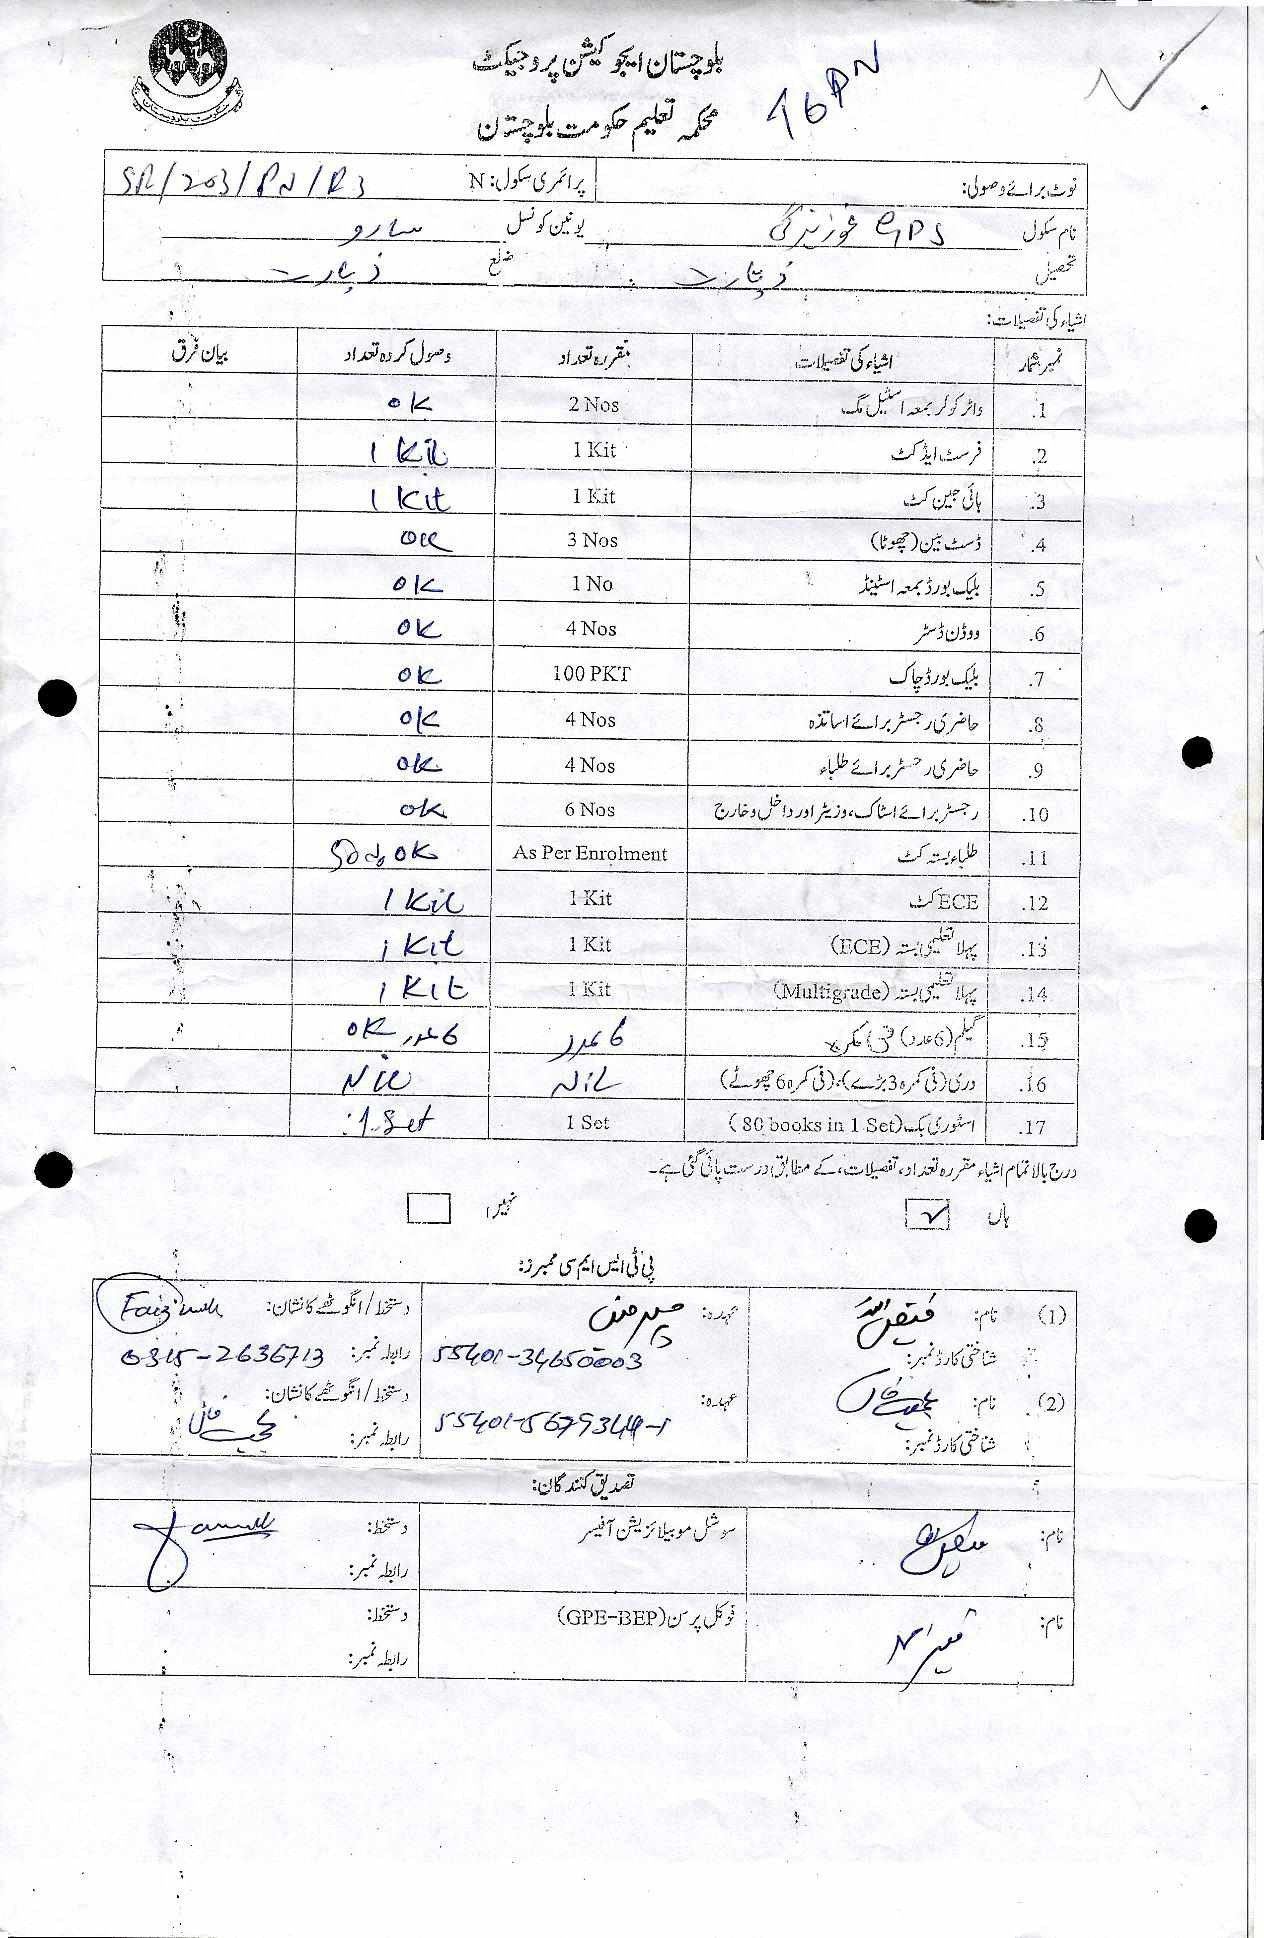 بلوچستان ایجوکیشن پروجیکٹ
محکمہ تعلیم حکومت بلوچستان
نوٹ برائے وصولی: پرائمری سکول: N SR/203/PN/R3
نام سکول GPS یونین کونسل سارو
تحصیل زیارت ضلع زیارت
اشیاء کی تفصیلات:
نمبر شمار اشیاء کی تفصیلات مقررہ تعداد وصول کردہ تعداد بیان فرق
1. واٹر کولر بمعہ اسٹیل مگ 2 Nos OK
2. فرسٹ ایڈ کٹ 1 Kit 1 Kit
3. ہائی جین کٹ 1 Kit 1 Kit
4. ڈسٹ بین (چھوٹا) 3 Nos OK
5. بلیک بورڈ بمعہ اسٹینڈ 1 No OK
6. ووڈن ڈسٹر 4 Nos OK
7. بلیک بورڈ چاک 100 PKT OK
8. حاضری رجسٹر برائے اساتذہ 4 Nos OK
9. حاضری رجسٹر برائے طلباء 4 Nos OK
10. رجسٹر برائے اسٹاک، وزیٹر اور داخل و خارج 6 Nos OK
11. طلباء بستہ کٹ As Per Enrolment OK
12. ECE کٹ 1 Kit 1 Kit
13. پہلا تعلیمی بستہ (ECE) 1 Kit 1 Kit
14. پہلا تعلیمی بستہ (Multigrade) 1 Kit 1 Kit
15. گیلم (6 عدد) فی کمرہ 6 عدد 6 عدد OK
16. دری (فی کمرہ 3 بڑے)، (فی کمرہ 6 چھوٹے) NIL NIL
17. اسٹوری بک (80 books in 1 Set) 1 Set 1 Set
درج بالا تمام اشیاء مقررہ تعداد، تفصیلات، کے مطابق درست پائی گئی ہے۔
ہاں ✓ نہیں
پی ٹی ایس ایم سی ممبرز:
(1) نام: فیض اللہ عہدہ: چیرمین دستخط/انگوٹھے کا نشان:
شناختی کارڈ نمبر: 55401-34650003 رابطہ نمبر: 0315-2636713
(2) نام: عہدہ: دستخط/انگوٹھے کا نشان:
شناختی کارڈ نمبر: رابطہ نمبر:
تصدیق کنندگان:
نام: سوشل موبیلائزیشن آفیسر دستخط:
رابطہ نمبر:
نام: فوکل پرسن (GPE-BEP) دستخط:
رابطہ نمبر: